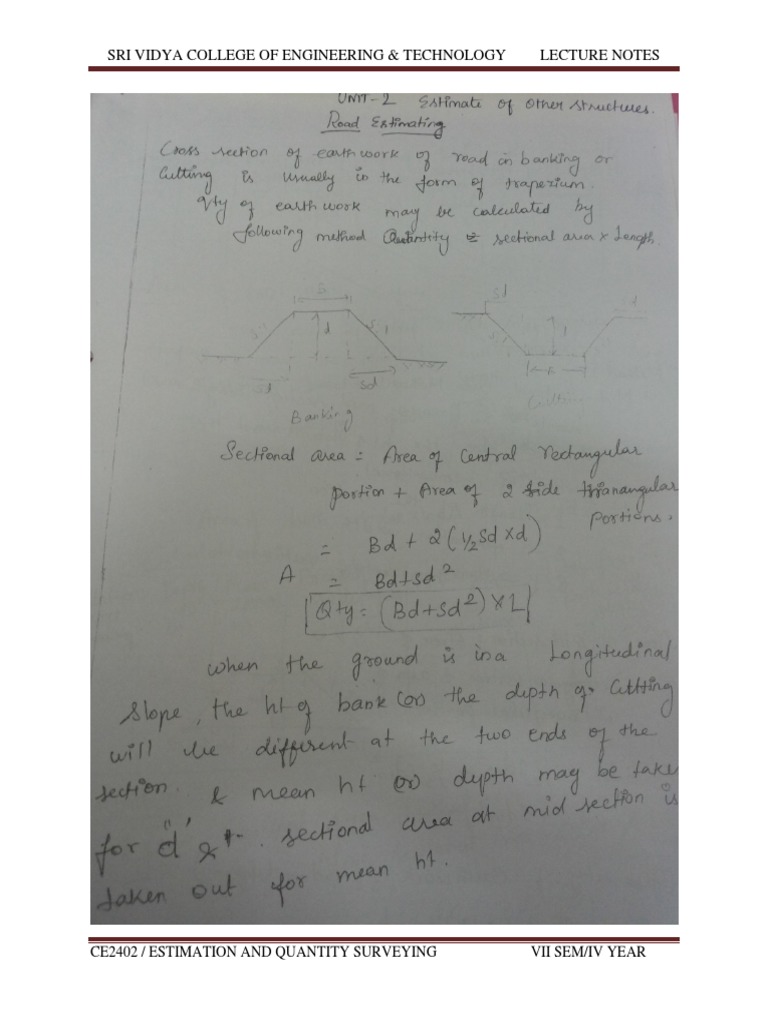 SRI VIDYA COLLEGE OF ENGINEERING & TECHNOLOGY LECTURE NOTES
UNIT-2 Estimate of other structures.
Road Estimating
Cross section of earthwork of road in banking or
Cutting is usually in the form of trapezium.
qty of earthwork may be calculated by
following method Quantity = sectional area x Length.
B
Sd
d
S:1
S:1
S:1
d
Sd
Sd
B
Banking
Sectional area = Area of central rectangular
portion + Area of 2 side trianangular
portions.
= Bd + 2(1/2 Sd x d)
A = Bd+sd²
Qty = (Bd+sd²) x L
when the ground is in a Longitudinal
slope, the ht of bank (or) the depth of Cutting
will be different at the two ends of the
section. & mean ht (or) depth may be taken
for "d" sectional area at mid section is
taken out for mean ht.
CE2402 / ESTIMATION AND QUANTITY SURVEYING VII SEM/IV YEAR